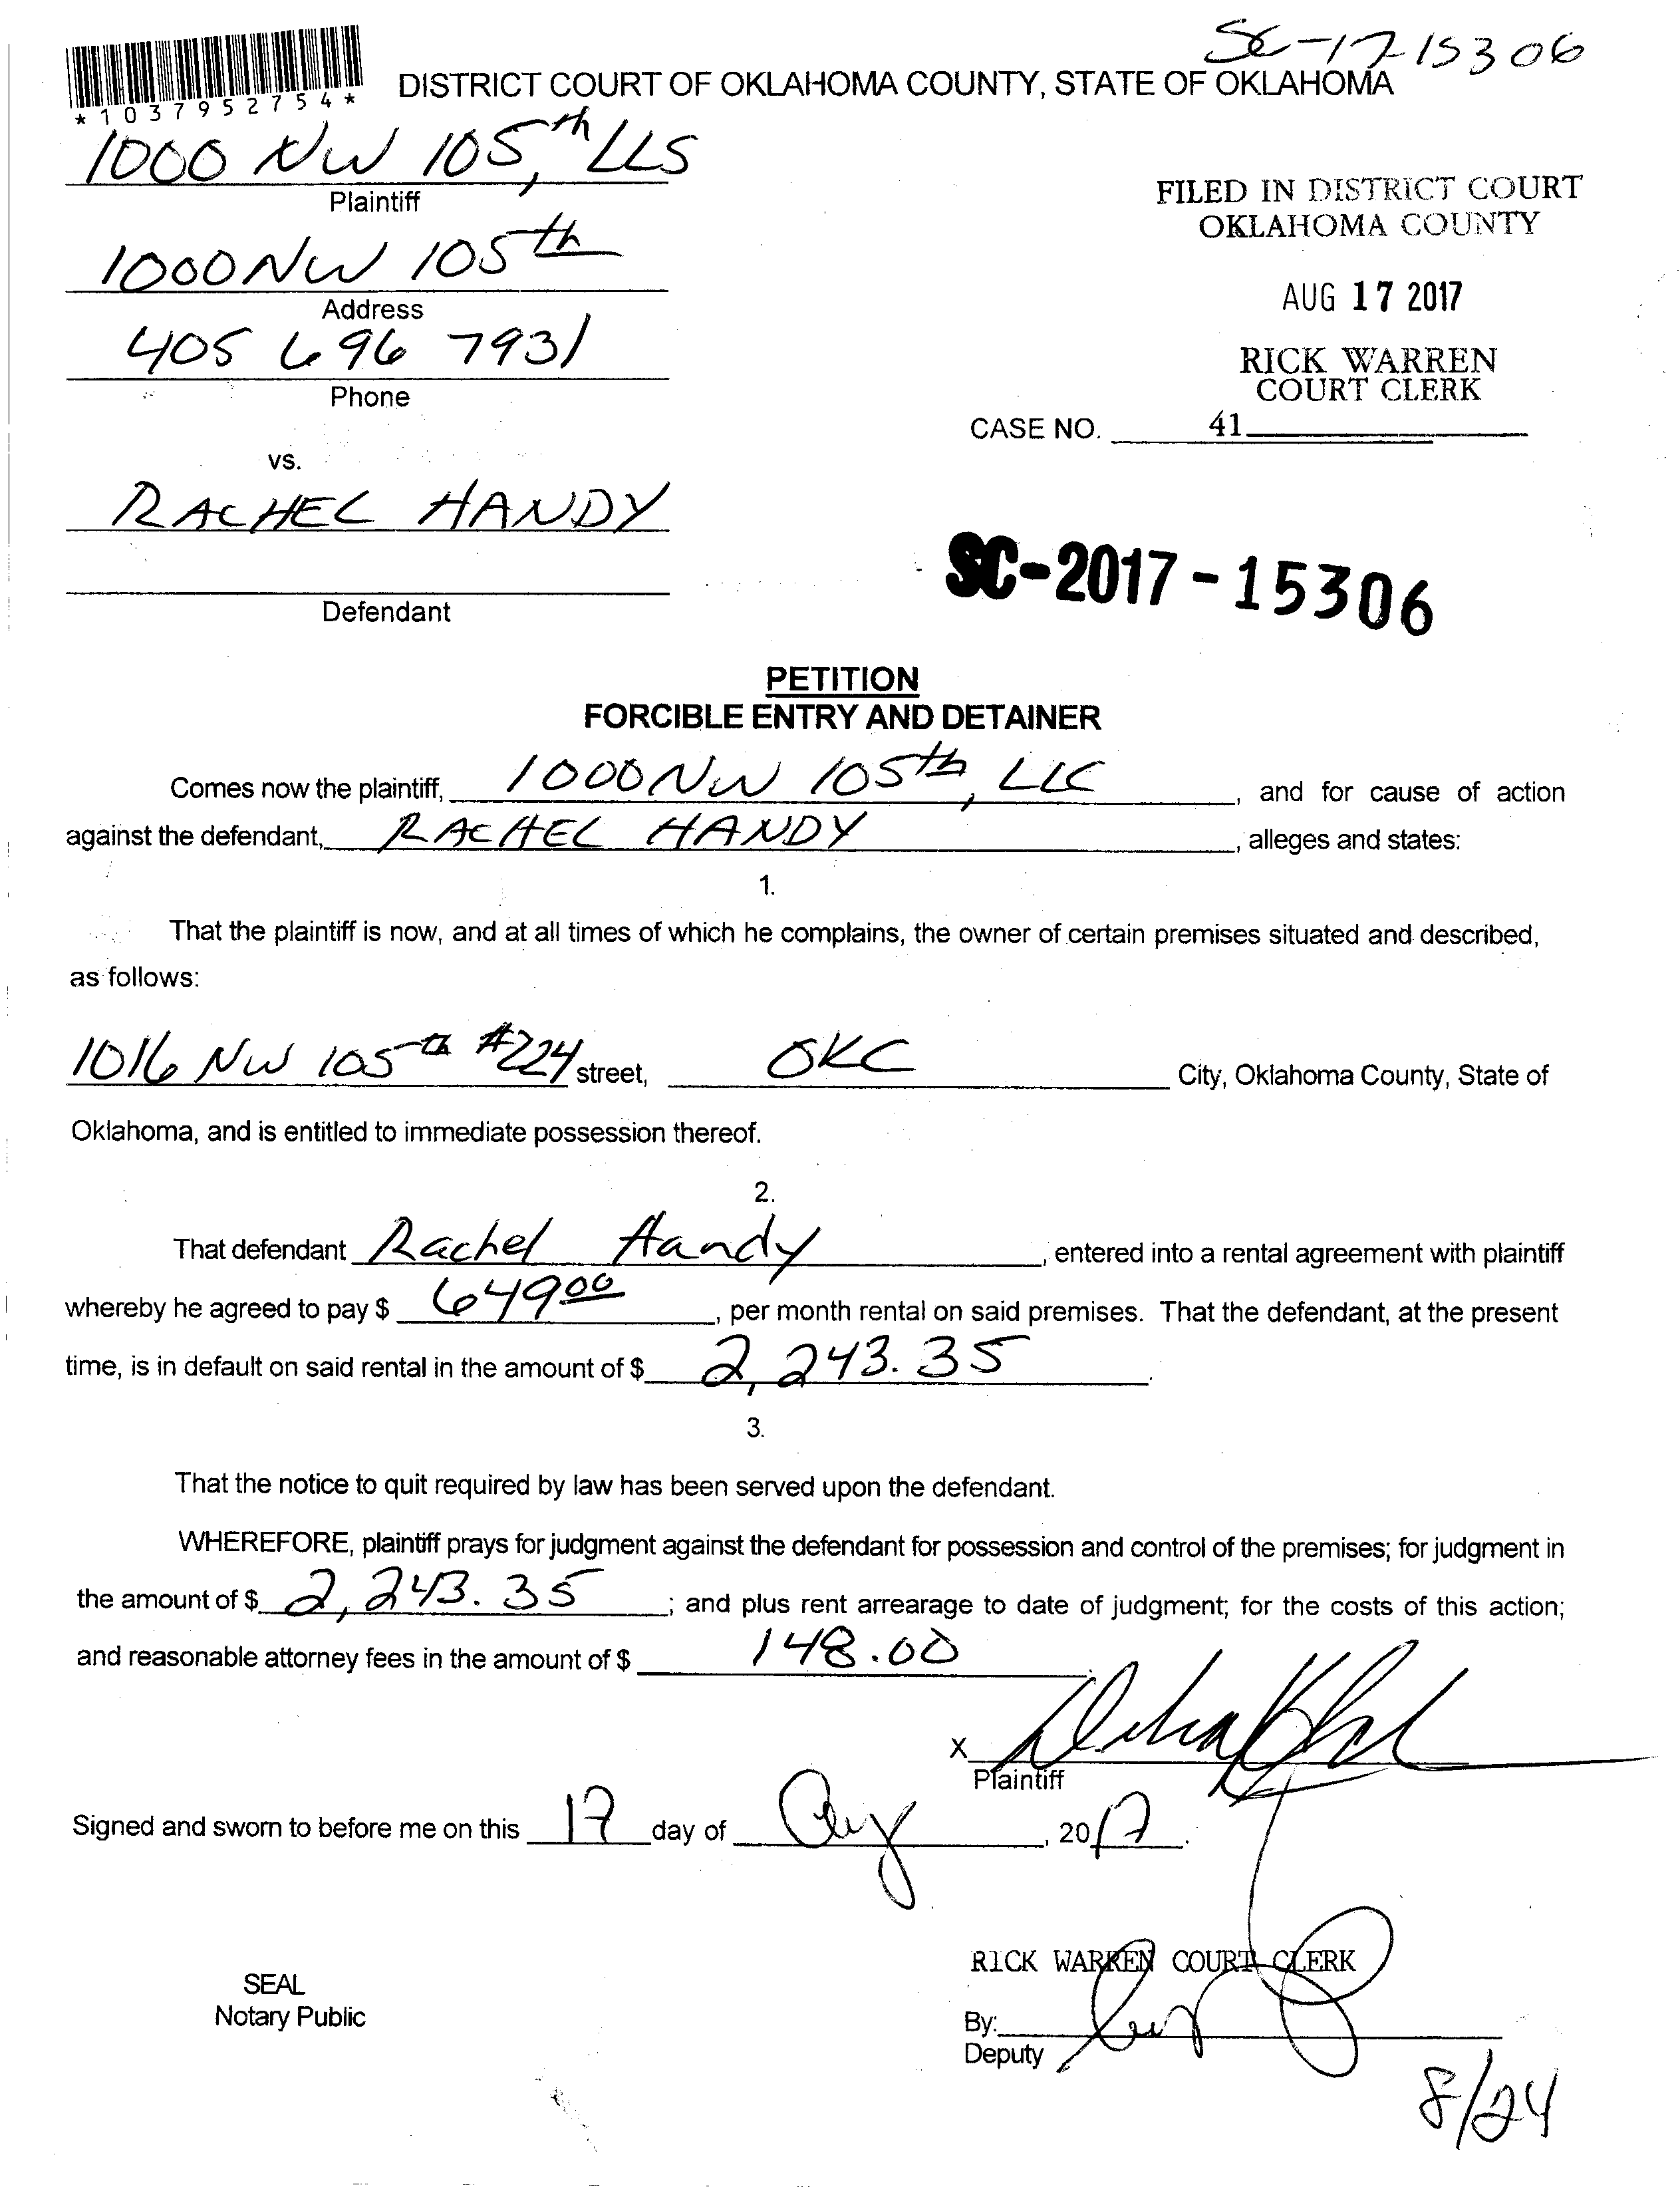 SC-17-15306
*1037952754*
DISTRICT COURT OF OKLAHOMA COUNTY, STATE OF OKLAHOMA
1000 NW 105th, LLS
Plaintiff
FILED IN DISTRICT COURT
OKLAHOMA COUNTY
1000 NW 105th
Address
AUG 17 2017
405 696 7931
Phone
RICK WARREN
COURT CLERK
CASE NO. 41
vs.
RACHEL HANDY
Defendant
SC-2017-15306
PETITION
FORCIBLE ENTRY AND DETAINER
Comes now the plaintiff, 1000 NW 105th, LLC, and for cause of action
against the defendant, RACHEL HANDY, alleges and states:
1.
That the plaintiff is now, and at all times of which he complains, the owner of certain premises situated and described,
as follows:
1016 NW 105th #224 street, OKC City, Oklahoma County, State of
Oklahoma, and is entitled to immediate possession thereof.
2.
That defendant Rachel Handy, entered into a rental agreement with plaintiff
whereby he agreed to pay $ 649.00, per month rental on said premises. That the defendant, at the present
time, is in default on said rental in the amount of $ 2,243.35.
3.
That the notice to quit required by law has been served upon the defendant.
WHEREFORE, plaintiff prays for judgment against the defendant for possession and control of the premises; for judgment in
the amount of $ 2,243.35; and plus rent arrearage to date of judgment; for the costs of this action;
and reasonable attorney fees in the amount of $ 148.00.
X
Plaintiff
Signed and sworn to before me on this 17 day of Aug, 2017.
RICK WARREN COURT CLERK
SEAL
Notary Public
By:
Deputy
8/24